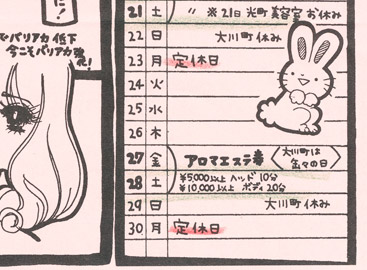 に!
でバリアカ 低下
今こそバリアカ強
化!
21 土 〃 ※21日 光町美容室 お休み
22 日 大川町 休み
23 月 定休日
24 火
25 水
26 木
27 金 アロマエステ春
大川町は
金々の日
28 土 ¥5,000以上 ヘッド 10分
¥10,000以上 ボディ 20分
29 日 大川町 休み
30 月 定休日